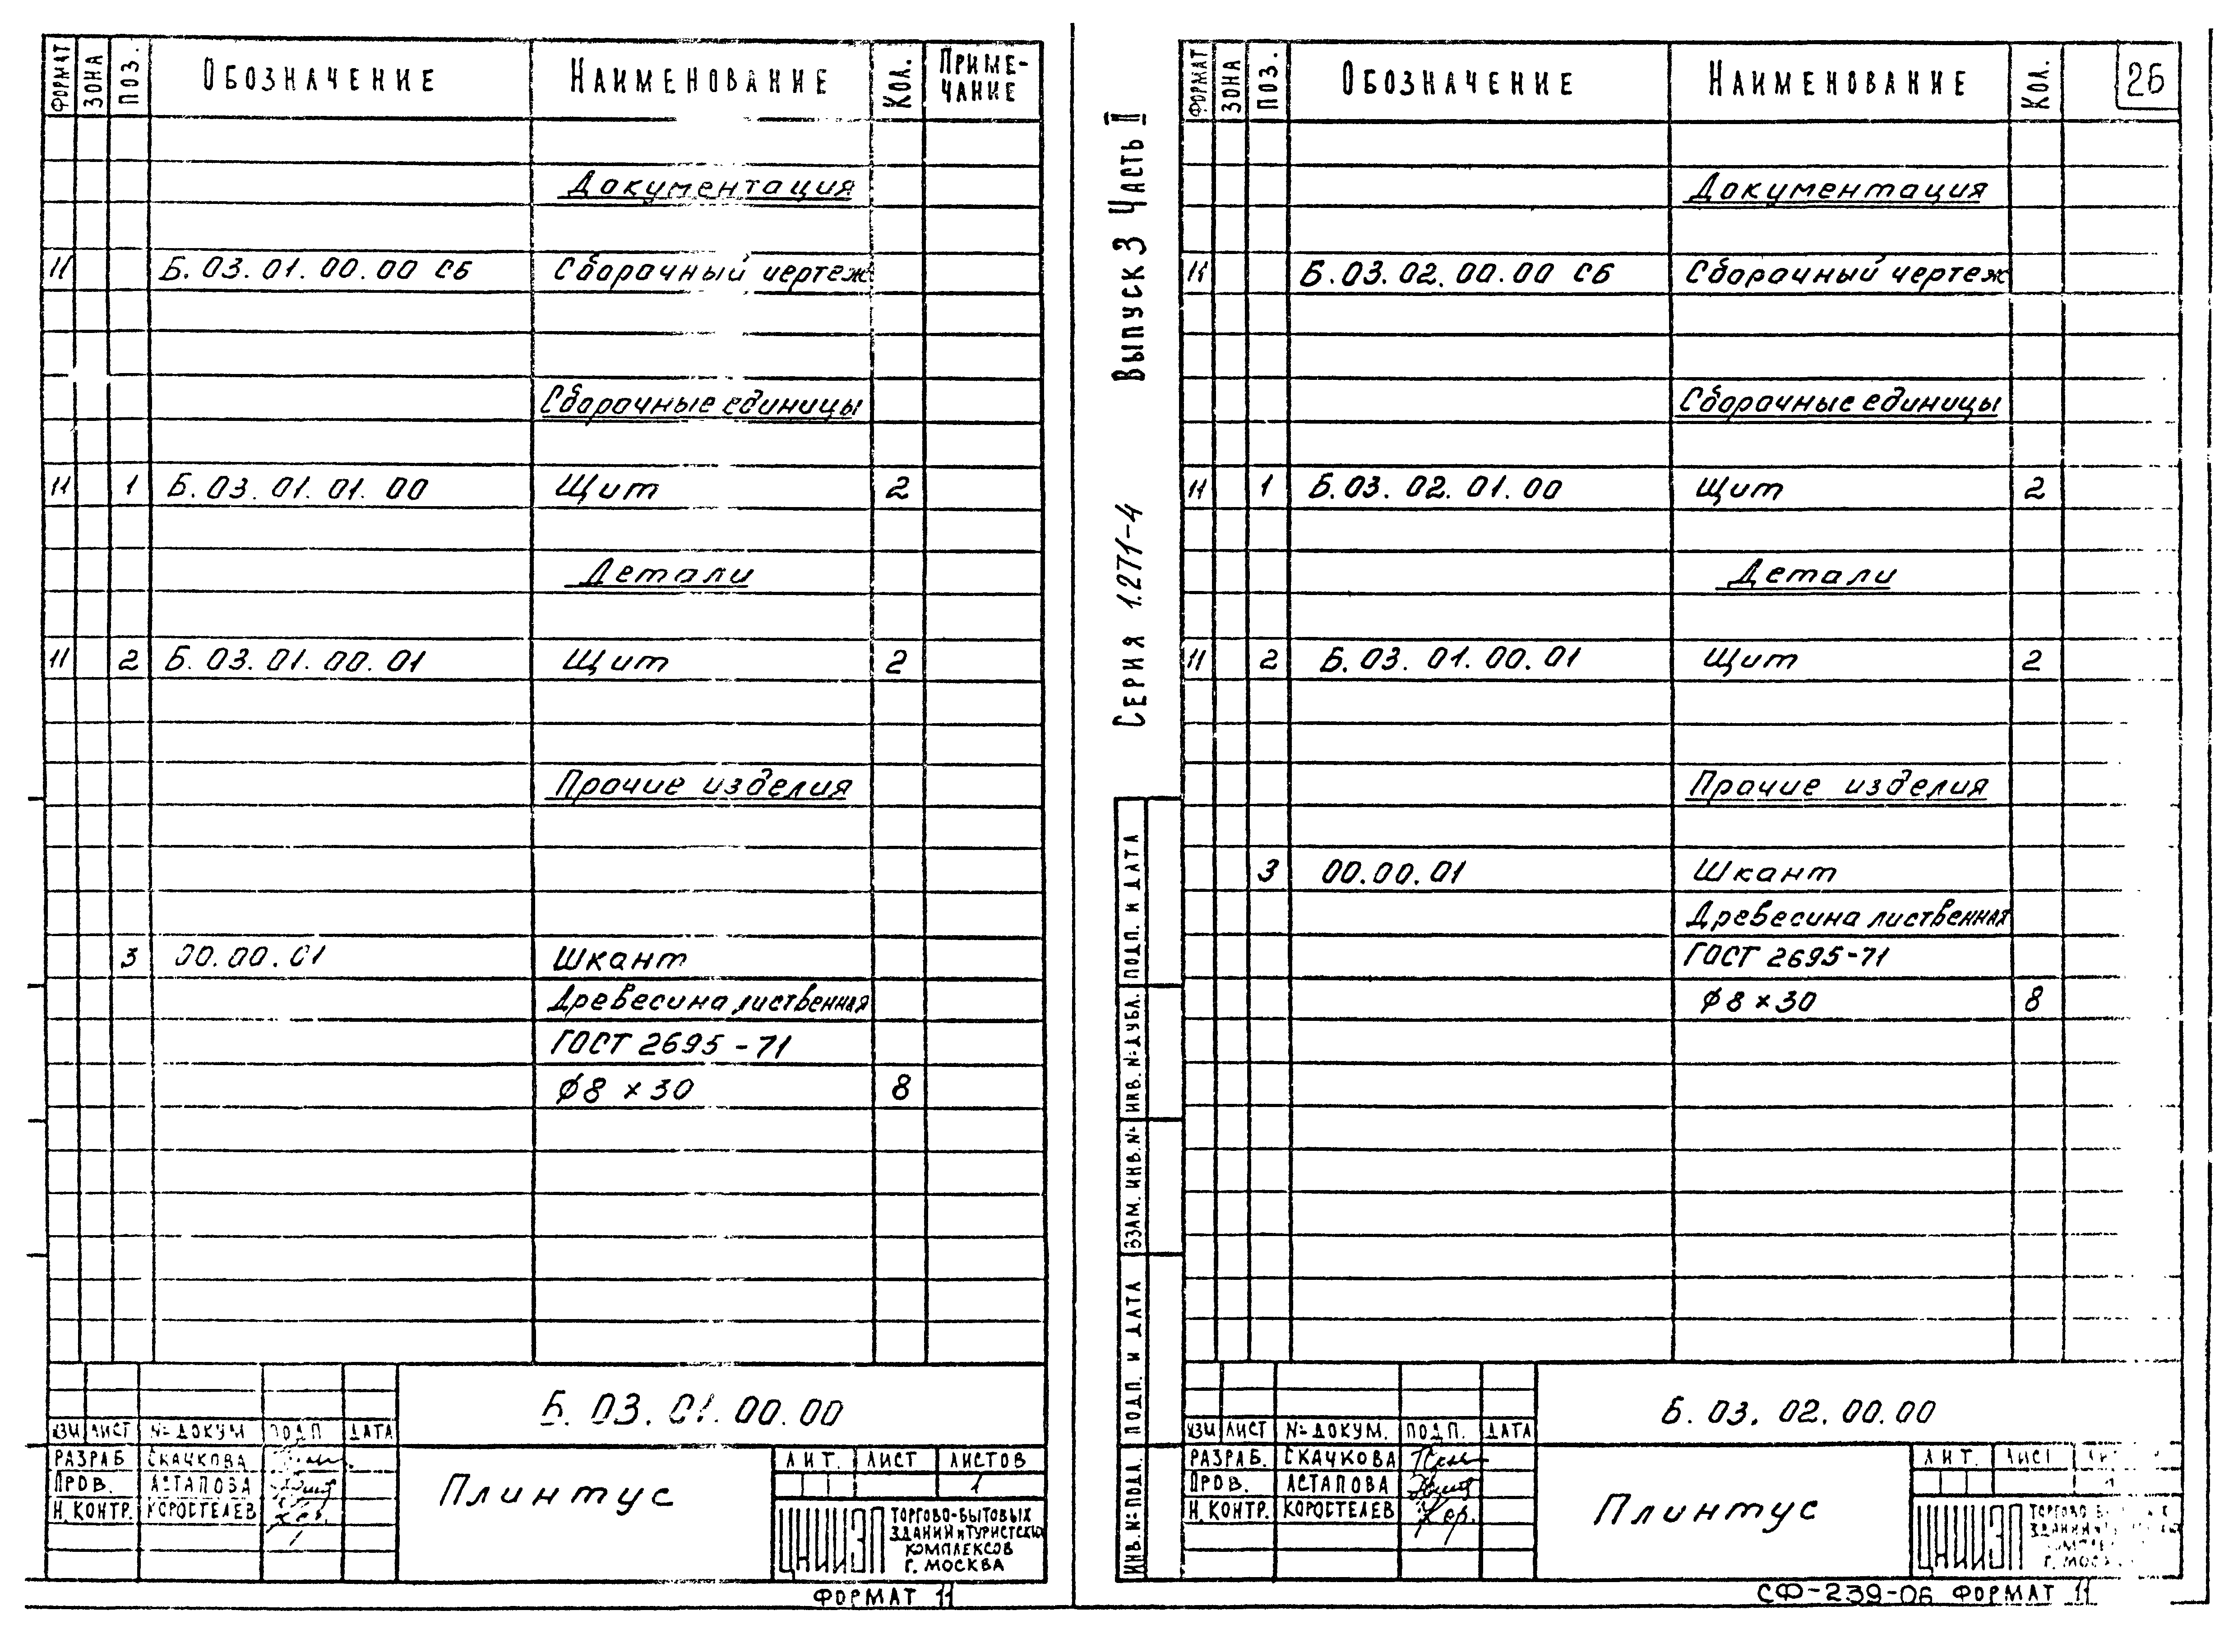 ФОРМАТ ЗОНА ПОЗ. ОБОЗНАЧЕНИЕ НАИМЕНОВАНИЕ КОЛ. ПРИМЕ-
ЧАНИЕ
Документация
11 Б.03.01.00.00 СБ Сборочный чертеж
Сборочные единицы
11 1 Б.03.01.01.00 Щит 2
Детали
11 2 Б.03.01.00.01 Щит 2
Прочие изделия
3 00.00.01 Шкант
Древесина лиственная
ГОСТ 2695-71
ϕ8 × 30 8
Б.03.01.00.00
ИЗМ ЛИСТ № ДОКУМ ПОДП ДАТА
РАЗРАБ СКАЧКОВА
ПРОВ. АСТАПОВА
Н.КОНТР. КОРОСТЕЛЕВ
Плинтус
ЛИТ. ЛИСТ ЛИСТОВ
1
ЦНИИЭП
ТОРГОВО-БЫТОВЫХ
ЗДАНИЙ И ТУРИСТСКИХ
КОМПЛЕКСОВ
Г. МОСКВА
ФОРМАТ 11
СЕРИЯ 1.271-4 ВЫПУСК 3 ЧАСТЬ II
ФОРМАТ ЗОНА ПОЗ. ОБОЗНАЧЕНИЕ НАИМЕНОВАНИЕ КОЛ. 26
Документация
11 Б.03.02.00.00 СБ Сборочный чертеж
Сборочные единицы
11 1 Б.03.02.01.00 Щит 2
Детали
11 2 Б.03.01.00.01 Щит 2
Прочие изделия
3 00.00.01 Шкант
Древесина лиственная
ГОСТ 2695-71
ϕ8×30 8
ИНВ.№ПОДЛ. ПОДП. И ДАТА ВЗАМ. ИНВ.№ ИНВ.№ДУБЛ. ПОДП. И ДАТА
Б.03.02.00.00
ИЗМ ЛИСТ № ДОКУМ. ПОДП. ДАТА
РАЗРАБ. СКАЧКОВА
ПРОВ. АСТАПОВА
Н.КОНТР. КОРОСТЕЛЕВ
Плинтус
ЛИТ. ЛИСТ
ЦНИИЭП
ТОРГОВО
ЗДАНИЙ
Г. МОСК
СФ-239-06 ФОРМАТ 11